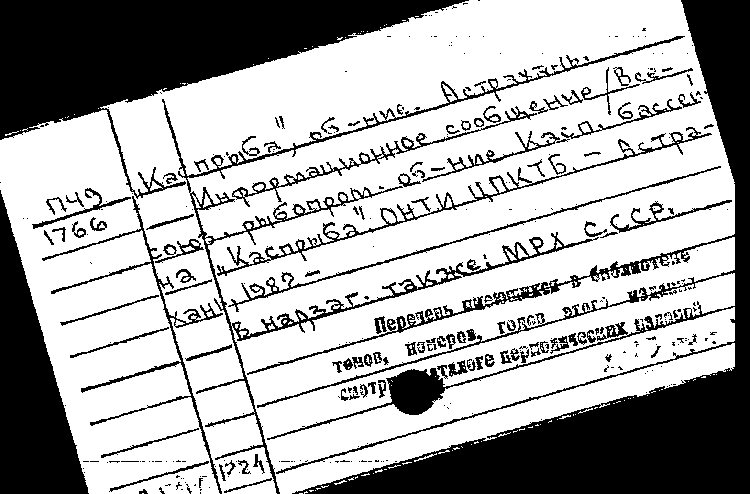 П49
1766
„Каспрыба", об-ние. Астрахань.
Информационное сообщение / Все-
союз. рыбопром. об-ние Касп. бассей-
на „Каспрыба". ОНТИ ЦПКТБ. – Астра-
хань, 1982 –
В надзаг. также: МРХ СССР.
Перечень имеющихся в библиотеке
томов, номеров, годов этого издания
смотри каталоге периодических изданий
1724